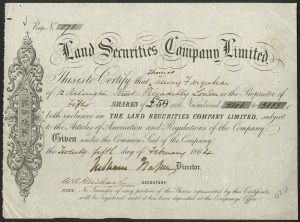 Reg. No. 171
Land Securities Company Limited
Thomas
This is to Certify that Henry Farquhar
of 12 Street Piccadilly London is the Proprietor of
Fifty SHARES of £50 each Numbered 3101 to 3150
both inclusive in THE LAND SECURITIES COMPANY LIMITED, subject
to the Articles of Association and Regulations of the Company
Given under the Common Seal of the Company
the Twenty fifth day of February 1864
Director.
SECRETARY.
NOTE. No Transfer of any portion of the Shares represented by this Certificate
will be registered until it has been deposited at the Company's Offices.